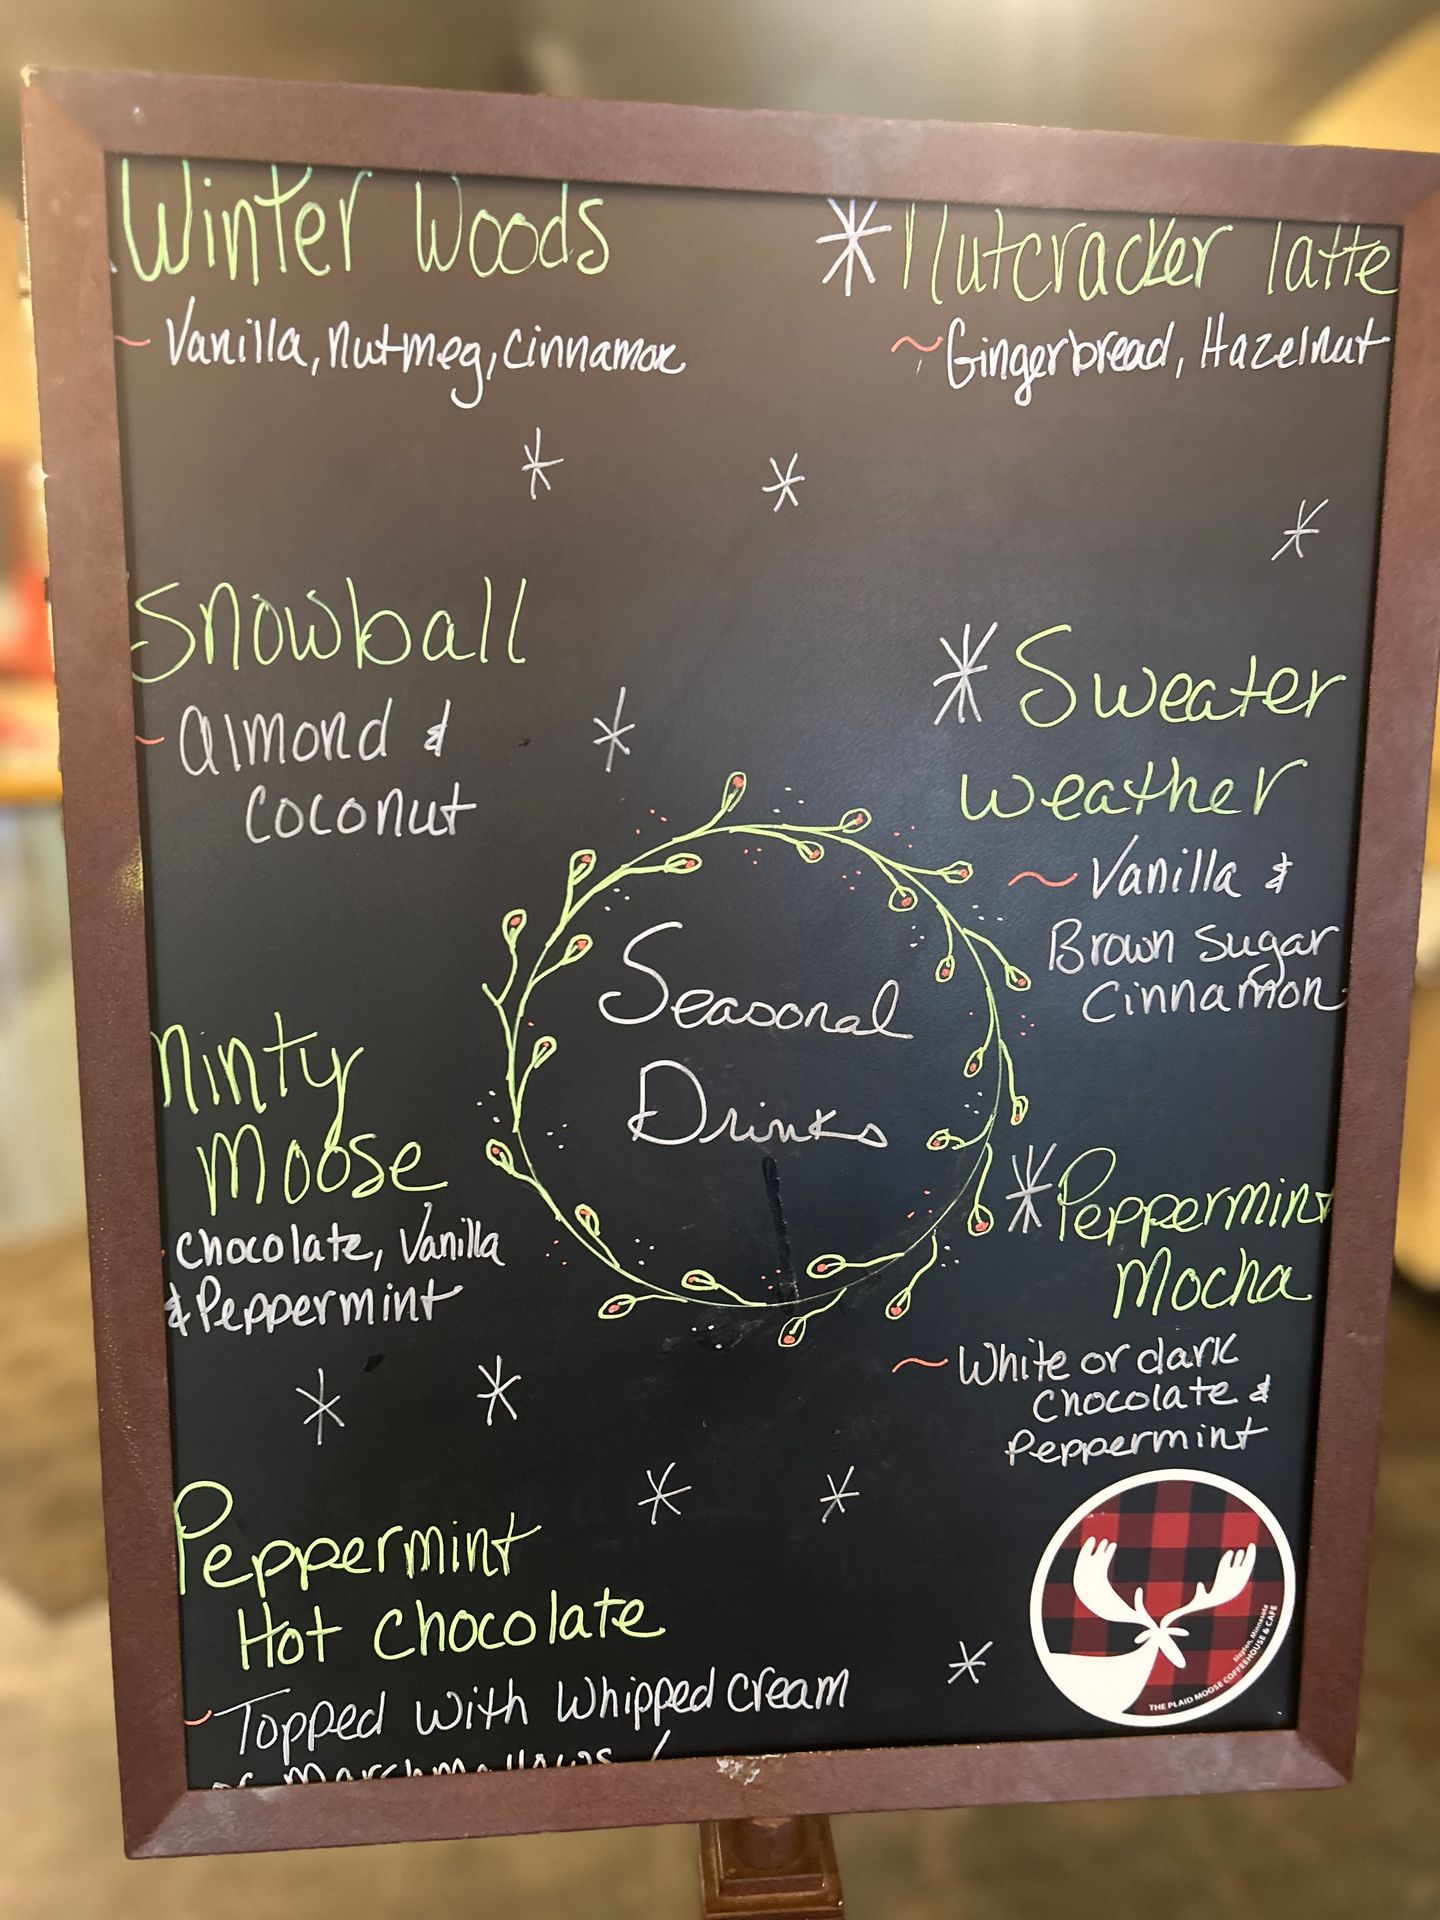 Winter Woods
~ Vanilla, nutmeg, cinnamon
Snowball
~ almond &
coconut
Minty
Moose
chocolate, Vanilla
& Peppermint
Peppermint
Hot chocolate
~ Topped with whipped cream
or marshmallows!
Seasonal
Drinks
Nutcracker latte
~ Gingerbread, Hazelnut
Sweater
weather
~ Vanilla &
Brown Sugar
Cinnamon
Peppermint
Mocha
~ White or dark
chocolate &
Peppermint
Slayton, Minnesota
THE PLAID MOOSE COFFEEHOUSE & CAFE